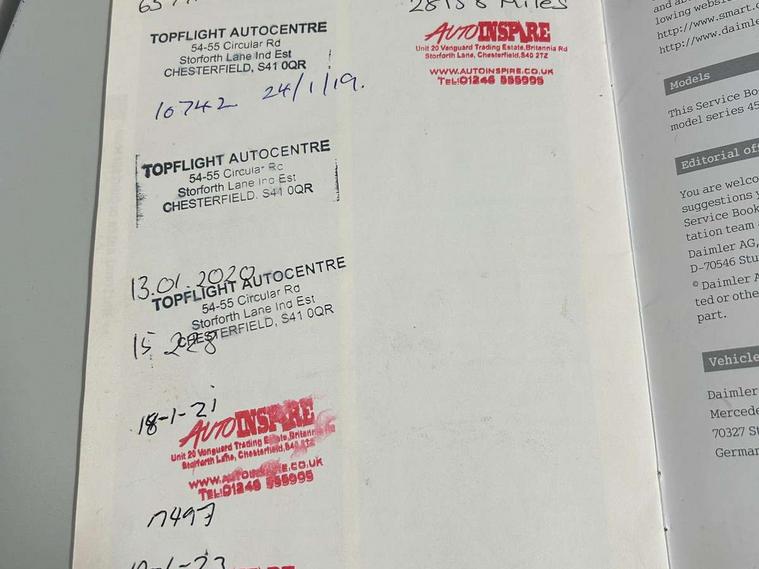 TOPFLIGHT AUTOCENTRE
54-55 Circular Rd
Storforth Lane Ind Est
CHESTERFIELD, S41 0QR
10742 24/1/19.
TOPFLIGHT AUTOCENTRE
54-55 Circular Rd
Storforth Lane Ind Est
CHESTERFIELD, S41 0QR
13.01.2020
TOPFLIGHT AUTOCENTRE
54-55 Circular Rd
Storforth Lane Ind Est
CHESTERFIELD, S41 0QR
15 228
18-1-21
AUTOINSPIRE
Unit 20 Vanguard Trading Estate, Britannia Rd
Storforth Lane, Chesterfield, S40 2TZ
WWW.AUTOINSPIRE.CO.UK
TEL:01246 555995
17497
28138 Miles
AUTOINSPIRE
Unit 20 Vanguard Trading Estate, Britannia Rd
Storforth Lane, Chesterfield, S40 2TZ
WWW.AUTOINSPIRE.CO.UK
TEL:01246 555995
lowing website
http://www.smart.
http://www.daimle
Models
This Service Bo
model series 45
Editorial off
You are welco
suggestions y
Service Book
tation team
Daimler AG,
D-70546 Stu
© Daimler A
ted or othe
part.
Vehicle
Daimler
Mercede
70327 St
German